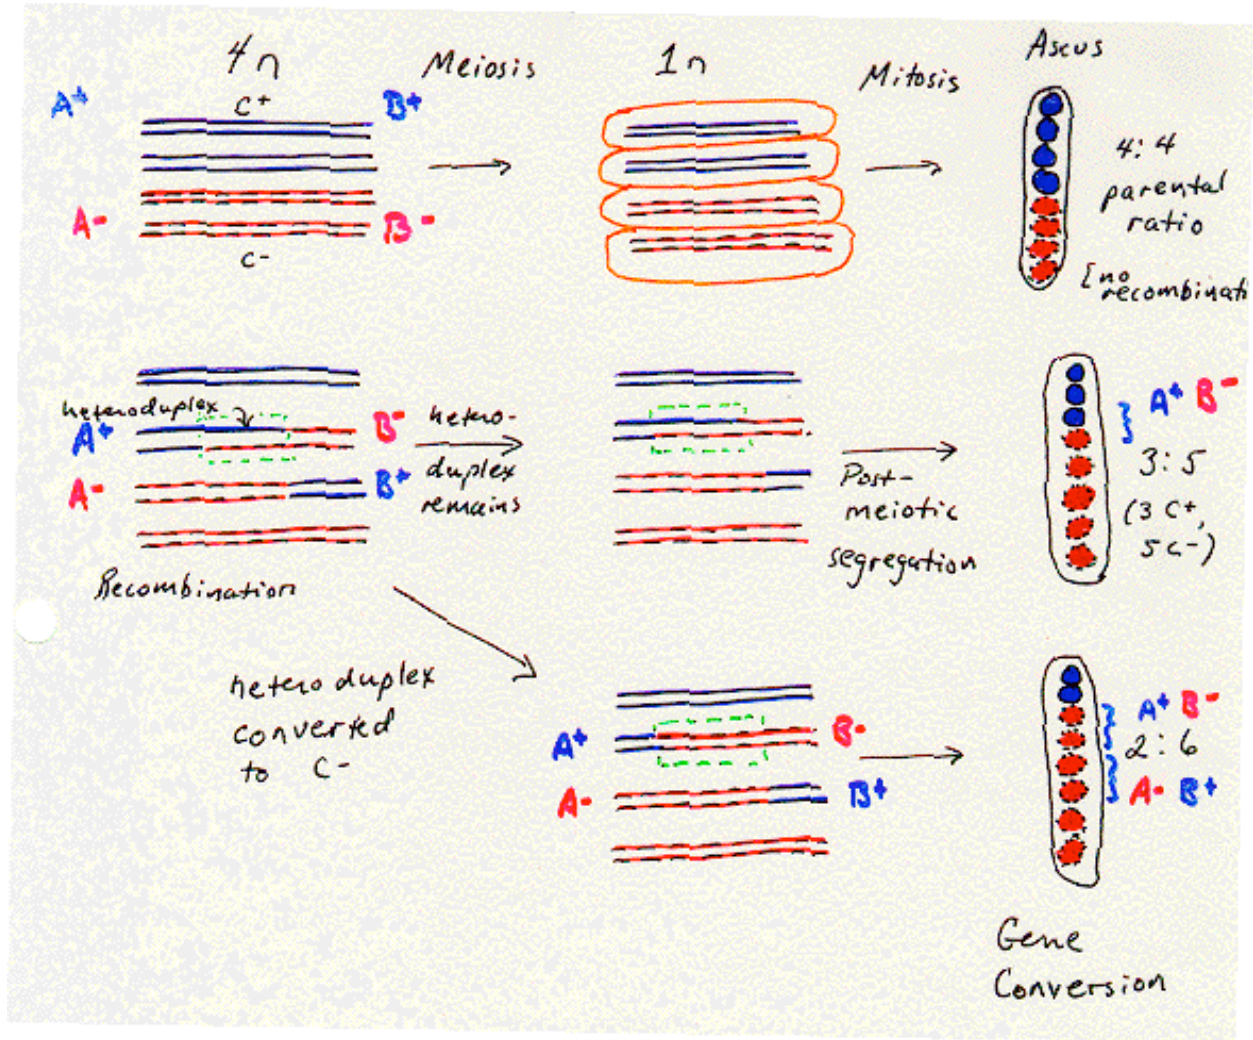 4n
Meiosis
1n
Mitosis
Ascus
A+
C+
B+
A-
B-
C-
4:4
parental
ratio
[no
recombinati
heteroduplex
A+
B-
A-
B+
hetero-
duplex
remains
Post-
meiotic
segregation
A+ B-
3:5
(3 C+,
5 C-)
Recombination
heteroduplex
converted
to C-
A+
B-
A-
B+
A+ B-
2:6
A- B+
Gene
Conversion